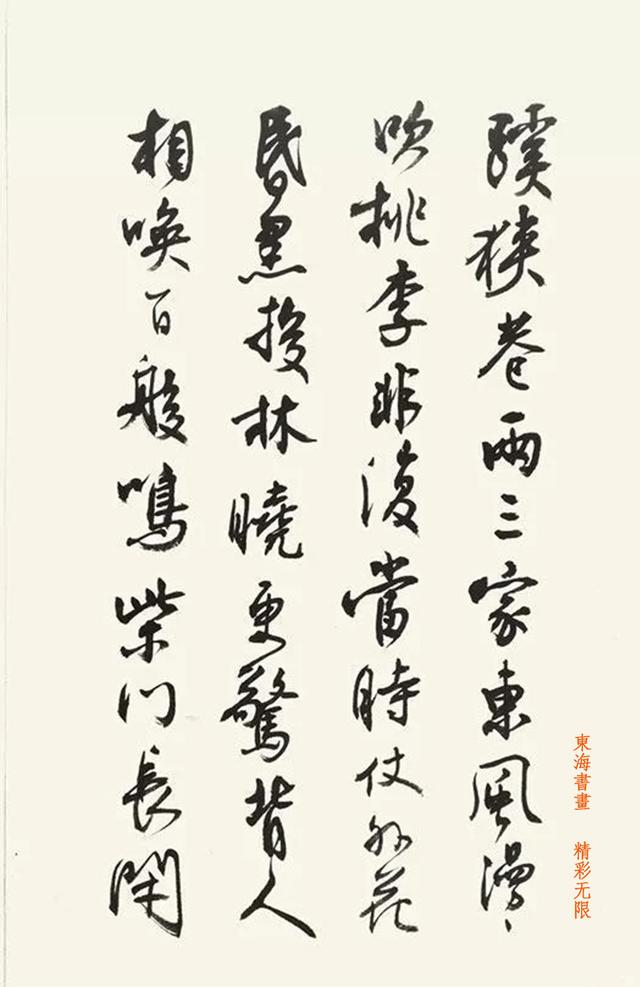 蹊狹巷兩三家東風漫〻
吹桃李非復當時仗外花
昏黑投林曉更驚背人
相喚百般鳴柴門長閇
東海書畫 精彩无限